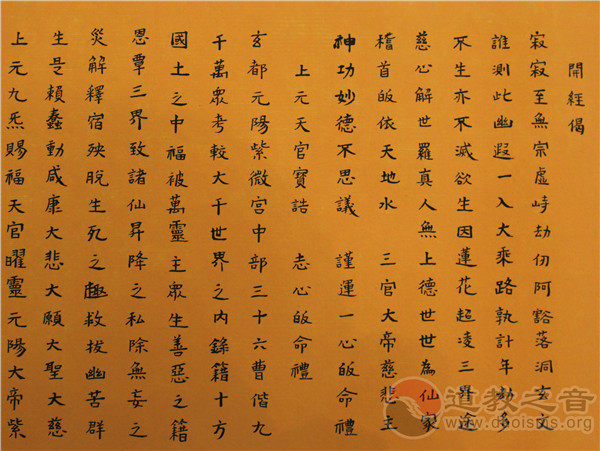 開經偈
寂寂至無宗虛峙劫仞阿豁落洞玄文
誰測此幽遐一入大乘路孰計年劫多
不生亦不滅欲生因蓮花超凌三界途
慈心解世羅真人無上德世世為仙家
稽首皈依天地水 三官大帝慈悲主
神功妙德不思議 謹運一心皈命禮
上元天官寶誥 志心皈命禮
玄都元陽紫微宮中部三十六曹偕九
千萬眾考較大千世界之內錄籍十方
國土之中福被萬靈主眾生善惡之籍
恩覃三界致諸仙昇降之私除無妄之
災解釋宿殃脫生死之趣救拔幽苦群
生是賴蠢動咸康大悲大願大聖大慈
上元九炁賜福天官曜靈元陽大帝紫
道教之音
www.daoisms.org